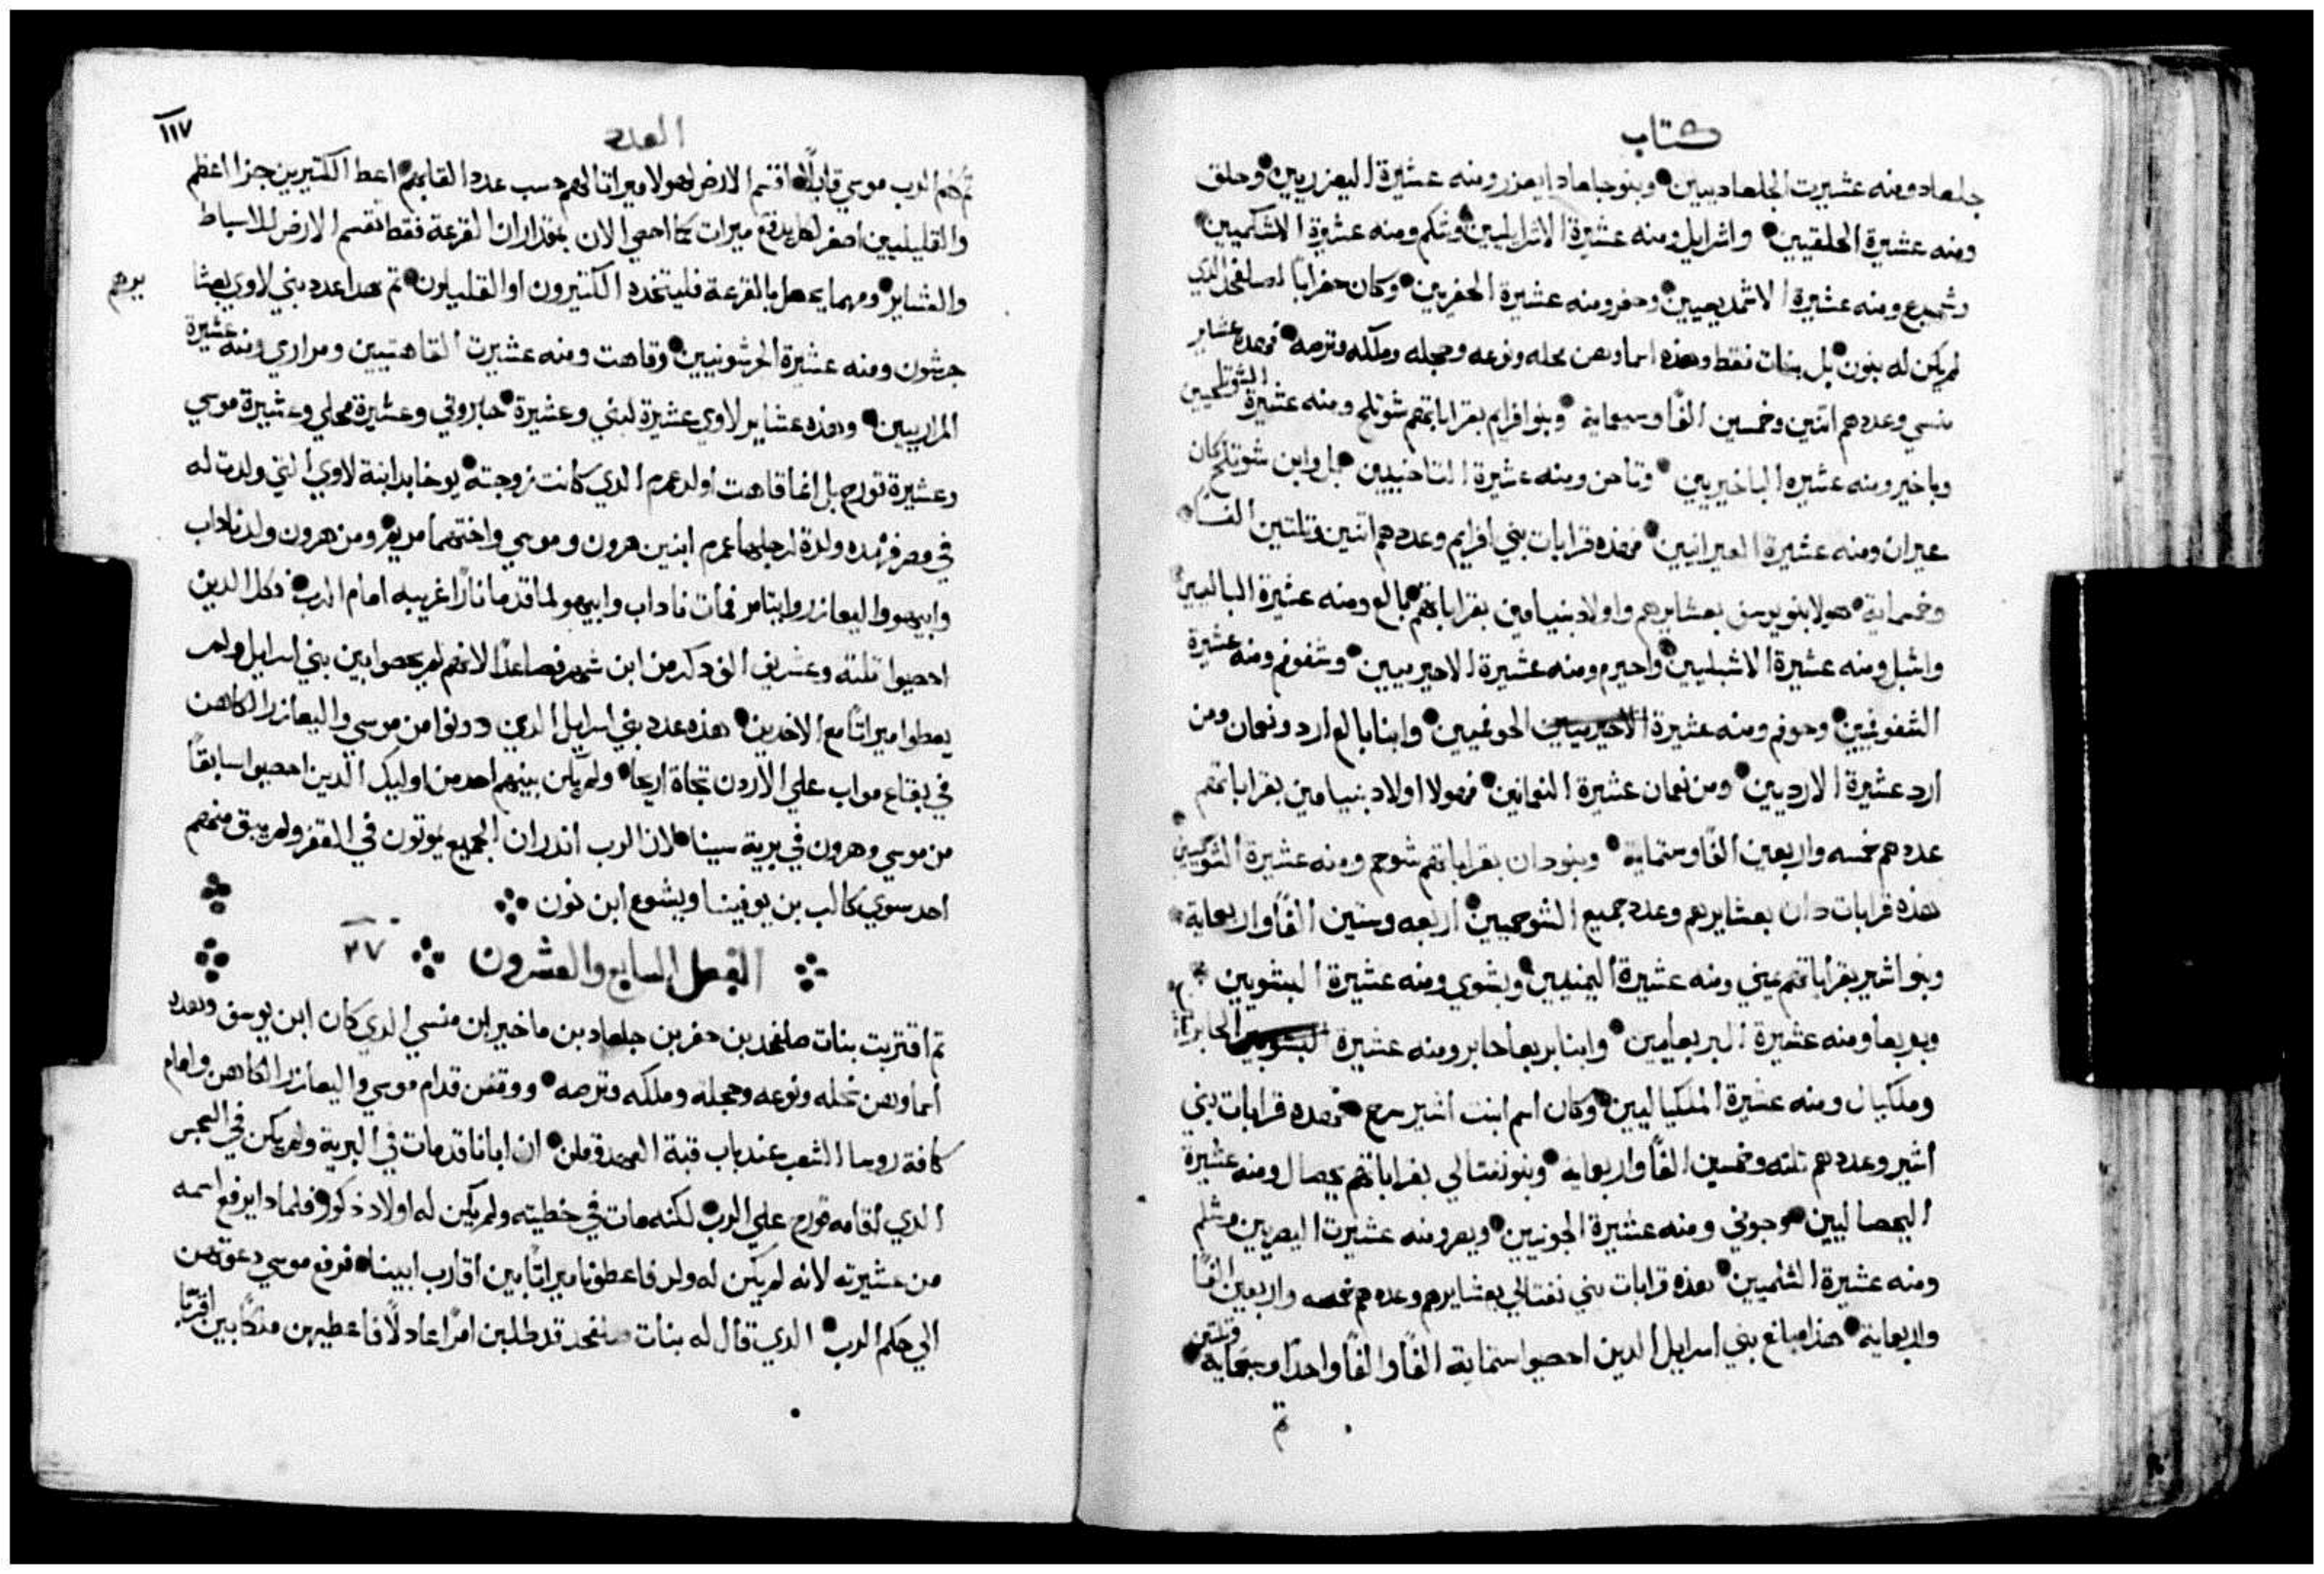 كتاب
جلعاد ومنه عشيرت الجلعاديين وبنو جلعاد ايعزر ومنه عشيرة اليعزريين وحلق
ومنه عشيرة الحلقيين واشرايل ومنه عشيرة الاشراييليين وشكم ومنه عشيرة الاشكميين
وشميدع ومنه عشيرة الاشمديعيين وحفر ومنه عشيرة الحفريين وكان حفر ابا لصلفحد الذي
لم يكن له بنون بل بنات فقط وهذه اسماوهن محله ونوعه وحجله وملكه وترصه فهذه عشاير
منسي وعددهم اتنين وخمسين الفًا وسبعماية وبنو افرايم بقراباتهم شوتلح ومنه عشيرة الشوتلحيين
وباخير ومنه عشيره الباخيريين وتاحن ومنه عشيرة التاحنيين بل وابن شوتلح كان
عيران ومنه عشيرة العيرانيين فهذه قرابات بني افرايم وعددهم اتنين وتلتين الفًا
وخمسماية هولا بنو يوسف بعشايرهم واولاد بنيامين بقراباتهم بالع ومنه عشيرة البالعيين
واشبل ومنه عشيرة الاشبليين واحيرم ومنه عشيرة الاحيرميين وشفوفم ومنه عشيرة
الشفوفميين وحوفم ومنه عشيرة الاحيرميين الحوفميين وابنا بالع ارد ونعمان ومن
ارد عشيرة الارديين ومن نعمان عشيرة النعمانين فهولا اولاد بنيامين بقراباتهم
عددهم خمسه واربعين الفًا وستماية وبنو دان بقراباتهم شوحم ومنه عشيرة الشوحميين
هذه قرابات دان بعشايرهم وعدد جميع الشوحميين اربعه وستين الفًا واربعماية
وبنو اشير بقراباتهم يمني ومنه عشيرة اليمنيين ويشوي ومنه عشيرة اليشويين
وبريعا ومنه عشيرة البريعايين وابنا بريعا حابر ومنه عشيرة اليشويين الحابريين
وملكيال ومنه عشيرة الملكياليين وكان اسم ابنت اشير سرح فهذه قرابات بني
اشير وعددهم تلته وخمسين الفًا واربعماية وبنو نفتالي بقراباتهم يحصال ومنه عشيرة
اليحصاليين وجوني ومنه عشيرة الجونيين ويصر ومنه عشيرت اليصريين وشلم
ومنه عشيرة الشلميين هذه قرابات بني نفتالي بعشايرهم وعددهم خمسه واربعين الفًا
واربعماية هذا مبلغ بني اسرايل الدين احصيوا ستماية الفًا والفًا واحدًا وسبعماية وتلتين
تم
العدد
١١٧
تم كلم الرب موسي قايلاً اقسم الارض لهولا ميراتا لهم حسب عدد القابهم اعط الكتيرين جزا اعظم
والقليليين اصغر لكل يدفع ميرات كما احصي الان بمقدار ان القرعة فقط تقسم الارض للاسباط
والعشاير ومهما يحصل بالقرعة فليتخده الكتيرون او القليلون تم هدا عدد بني لاوي بعشا
يرهم
جرشون ومنه عشيرة الجرشونيين وقاهت ومنه عشيرت القاهتيين ومراري ومنه عشيرة
المراريين وهذه عشاير لاوي عشيرة لبني وعشيرة حابروني وعشيرة محلي وعشيرة موسي
وعشيرة قورح بل انما قاهت اولد عمرم الدي كانت زوجته يوخابد ابنة لاوي التي ولدت له
في مصر فهذه ولدة لرجلها عمرم ابنين هرون وموسي واختهما مريم ومن هرون ولد ناداب
وابيهو واليعازر وايتامر فمات ناداب وابيهو لما قدما نارًا غريبه امام الرب وكل الدين
احصيوا تلتة وعشرين الف دكر من ابن شهر فصاعدًا لانهم لم يحصوا بين بني اسرايل ولم
يعطوا ميراتًا مع الاخرين هذه عدد بني اسرايل الدي دونوا من موسي واليعازر الكاهن
في بقاع مواب علي الاردن تجاة اريحا ولم يكن بينهم احد من اوليك الدين احصيوا سابقًا
من موسي وهرون في برية سينا لان الرب اندر ان الجميع يموتون في القفر ولم يبق منهم
احد سوي كالب بن يوفينا ويشوع ابن نون
الفصل السابع والعشرون ٢٧
تم اقتربت بنات صلفحد بن حفر بن جلعاد بن ماخير ابن منسي الدي كان ابن يوسف وهذه
اسماوهن محله ونوعه وحجله وملكه وترصه ووقفن قدام موسي واليعازر الكاهن وامام
كافة روسا الشعب عند باب قبة العهد وقلن ان ابانا قد مات في البرية ولم يكن في السجس
الدي اقامه قورح علي الرب لكنه مات في خطيته ولم يكن له اولاد ذكور فلمادا يرفع اسمه
من عشيرته لانه لم يكن له ولد فاعطونا ميراتًا بين اقارب ابينا فرفع موسي دعوتهن
الي حكم الرب الدي قال له بنات صلفحد قد طلبن امرًا عادلاً فاعطيهن ملكًا بين اقربا